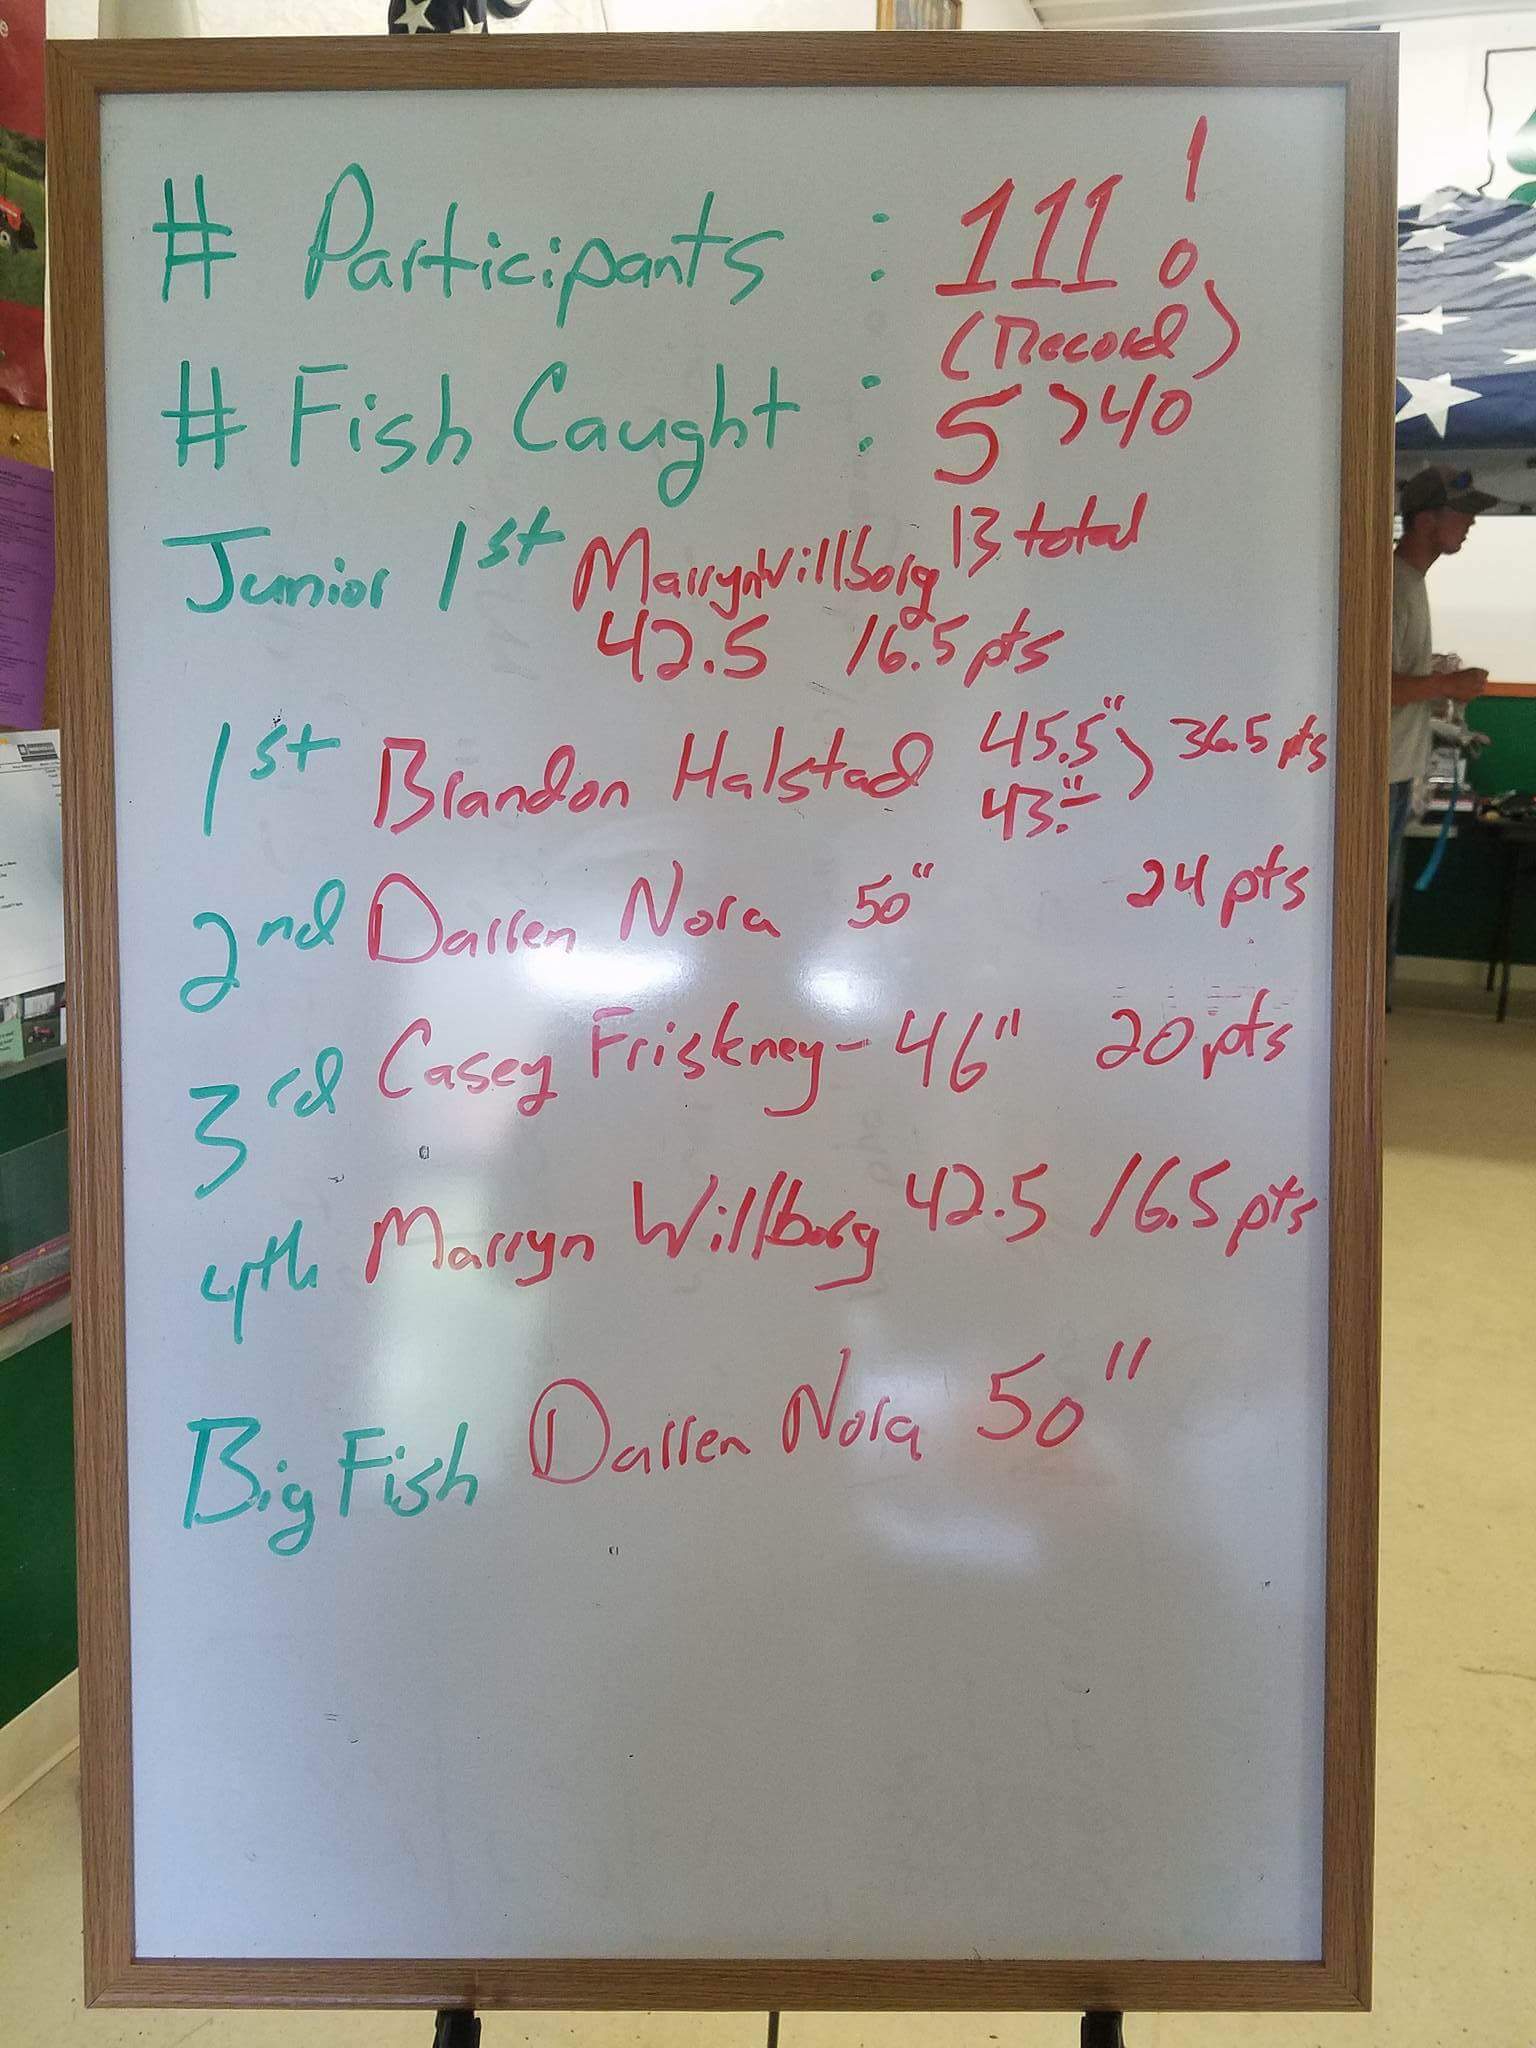 # Participants : 111!
(Record)
# Fish Caught : 5 >40
Junior 1st Marryn Willborg 13 total
42.5 16.5 pts
1st Brandon Halstad 45.5" 36.5 pts
43."
2nd Darren Nora 50" 24 pts
3rd Casey Friskney - 46" 20 pts
4th Marryn Willborg 42.5 16.5 pts
Big Fish Darren Nora 50"